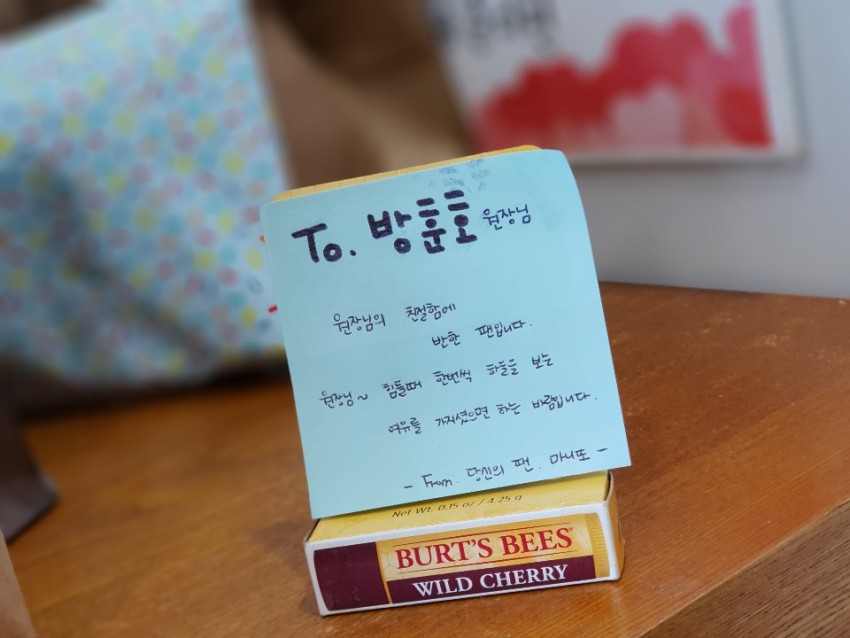 To. 방훈호 원장님
원장님의 친절함에
반한 팬입니다.
원장님~ 힘들때 한번씩 하늘을 보는
여유를 가지셨으면 하는 바람입니다.
- From. 당신의 팬. 마니또 -
Net Wt. 0.15 oz / 4.25 g
BURT'S BEES
WILD CHERRY